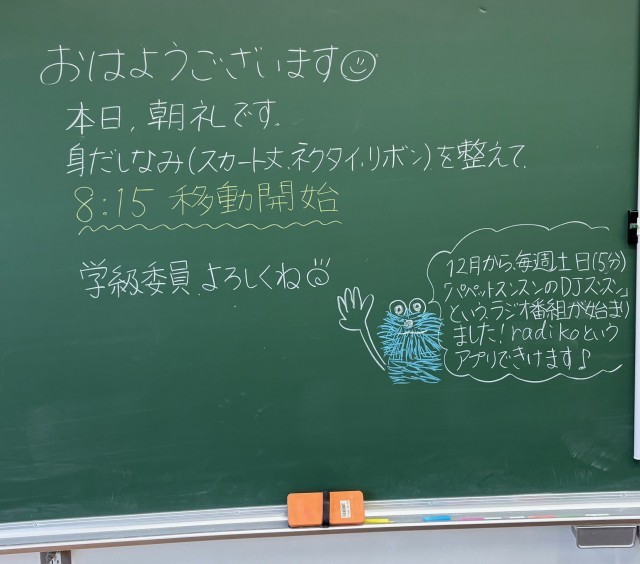 おはようございます☺
本日、朝礼です.
身だしなみ(スカート丈.ネクタイ.リボン)を整えて
8:15 移動開始
学級委員.よろしくね☺
12月から.毎週土日(5分)
「パペットスンスンのDJスンスン」
というラジオ番組が始まり
ました!radikoという
アプリできけます♪